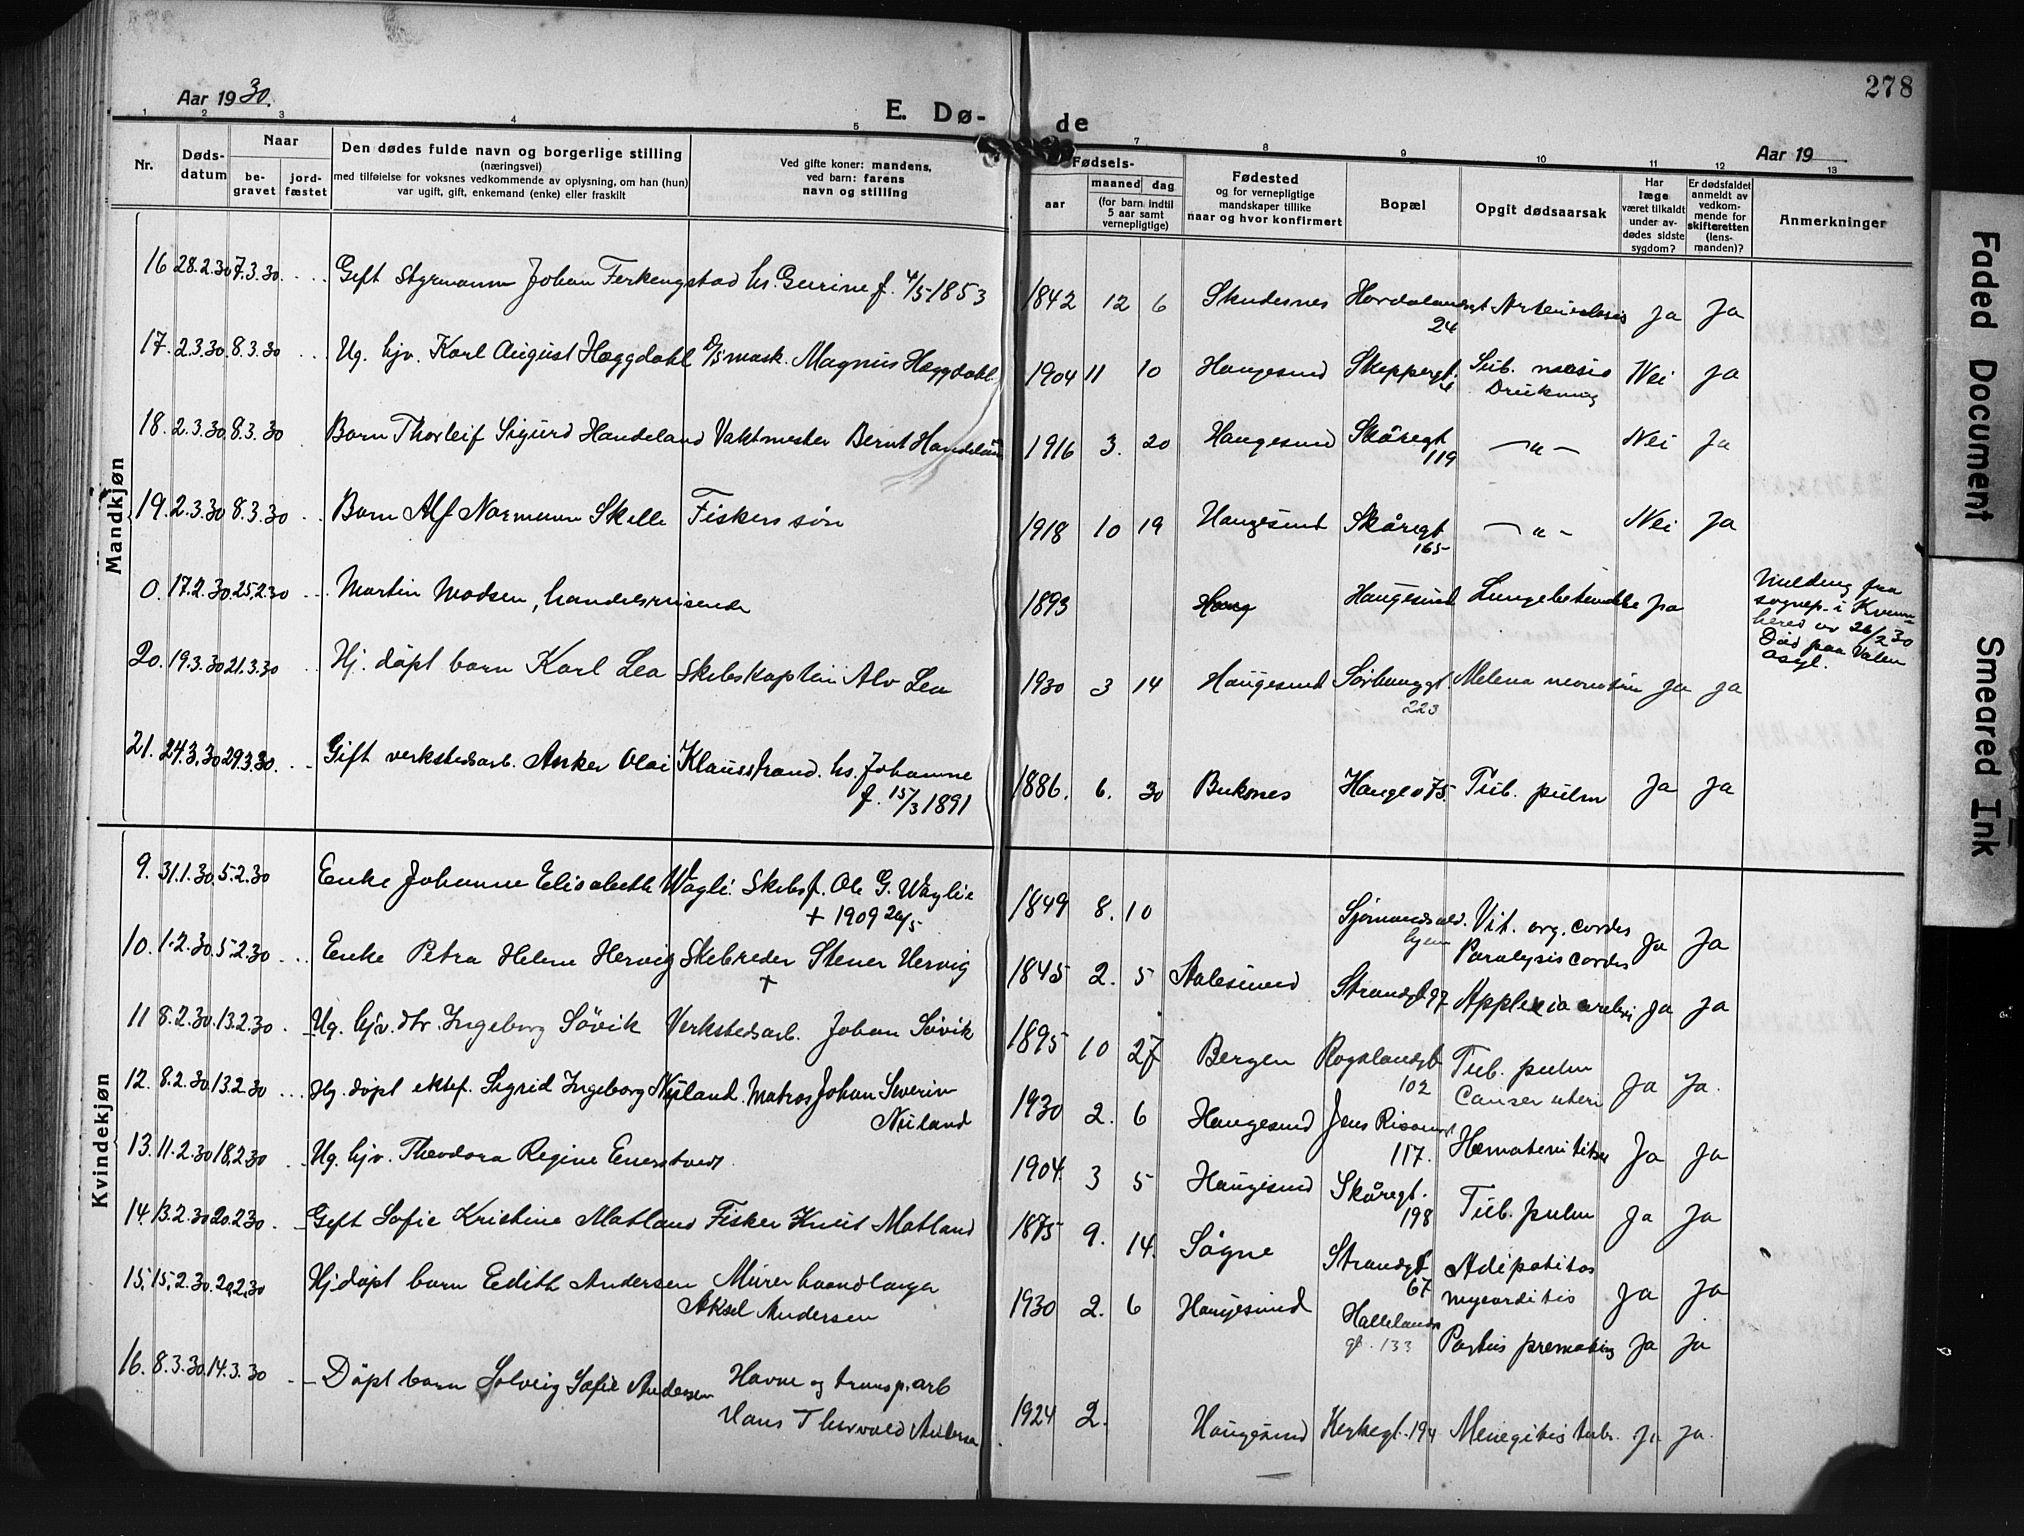 278
Aar 1930.
E. Dø-
de
Aar 19
1 2 3 4 5 7 8 9 10 11 12 13
Nr.
Døds-
datum
Naar
be-
gravet
jord-
fæstet
Den dødes fulde navn og borgerlige stilling
(næringsvei)
med tilføielse for voksnes vedkommende av oplysning, om han (hun)
var ugift, gift, enkemand (enke) eller fraskilt
Ved gifte koner: mandens,
ved barn: farens
navn og stilling
Fødsels-
aar
maaned dag
(for barn indtil
5 aar samt
vernepligtige)
Fødested
og for vernepligtige
mandskaper tillike
naar og hvor konfirmert
Bopæl
Opgit dødsaarsak
Har
læge
været tilkaldt
under av-
dødes sidste
sygdom?
Er dødsfaldet
anmeldt av
vedkom-
mende for
skifteretten
(lens-
manden)?
Anmerkninger
Mandkjøn
16 28.2.30 7.3.30 Gift Styrmann Johan Ferkengstad hs. Gurine f. 4/5 1853 1842 12 6 Skudesnes Hordalandsgt Arteriosclerosis Ja Ja
24
17. 2.3.30 8.3.30 Ug. hjv. Karl August Hæggdahl mask. Magnus Hæggdahl 1904 11 10 Haugesund Skeppergt. Nei Ja
Drukning
18. 2.3.30 8.3.30 Barn Thorleif Sigurd Handeland Vaktmester Bernt Handeland 1916 3. 20 Haugesund Skåregt — " — Nei Ja
119
19. 2.3.30 8.3.30 Barn Alf Normann Skelle Fiskers søn 1918 10 19 Haugesund Skåregt — " — Nei Ja
165
0. 17.2.30 25.2.30 Martin Madsen, handelsreisende 1893 Haug Haugesund Lungebetendelse ja
Melding fra
sognep. i Kvinn-
hered av 26/2 30
Død paa Valen
asyl.
20. 19.3.30 21.3.30 Hj. døpt barn Karl Lea Skibskaptein Alv Lea 1930 3 14 Haugesund Sørhauggt. Melena neonatum Ja Ja
223
21. 24.3.30 29.3.30 Gift verkstedsarb. Anker Olai Klausstrand. hs. Johanne
f. 15/3 1891
1886. 6. 30 Buksnes Haugev 75. Tub. pulm Ja Ja
Kvindekjøn
9. 31.1.30. 5.2.30 Enke Johanne Elisabeth Vågli. Skibsf. Ole G. Våglie
+ 1909 20/5
1849 8. 10 Sjømands Vit. org. cordis Ja Ja
hjem Paralysis cordis
10. 1.2.30. 5.2.30 Enke Petra Helene Hervig Skibreder Stener Hervig
+
1845 2. 5 Aalesund Strandgt 97 Applexia cerebri Ja Ja
11 8.2.30. 13.2.30. Ug. hjv. dtr. Ingeborg Søvik Verkstedsarb. Johan Søvik 1895 10 27 Bergen Rogalandgt Tub. pulm
102 Canser uteri Ja Ja.
12. 8.2.30 13.2.30 Hj. døpt ektef. Sigrid Ingeborg Nyland. Matros Johan Severin
Nyland
1930 2. 6 Haugesund Jens Risoensgt
117. Ja Ja
13. 11.2.30 18.2.30 Ug. hjv. Theodora Regine Enerstvedt 1904. 3 5 Haugesund Skåregt. Tub. pulm Ja Ja
198
14. 13.2.30 20.2.30. Gift Sofie Kristine Matland Fisker Knut Matland 1875 9. 14. Søgne Strandgt Adipositas
67 myocarditis Ja Ja
15. 15.2.30. 20.2.30 Hj døpt barn Edith Andersen Murer haandlanger
Aksel Andersen
1930 2. 6 Haugesund Hallelands
gt. 133 Partus prematurus Ja Ja
16. 8.3.30. 14.3.30 Døpt barn Solveig Sofie Andersen Havne og transp. arb
Hans Thorvald Andersen
1924 2. Haugesund Kirkegt. 194 Menegitis tub. Ja Ja.
Faded Document
Smeared Ink